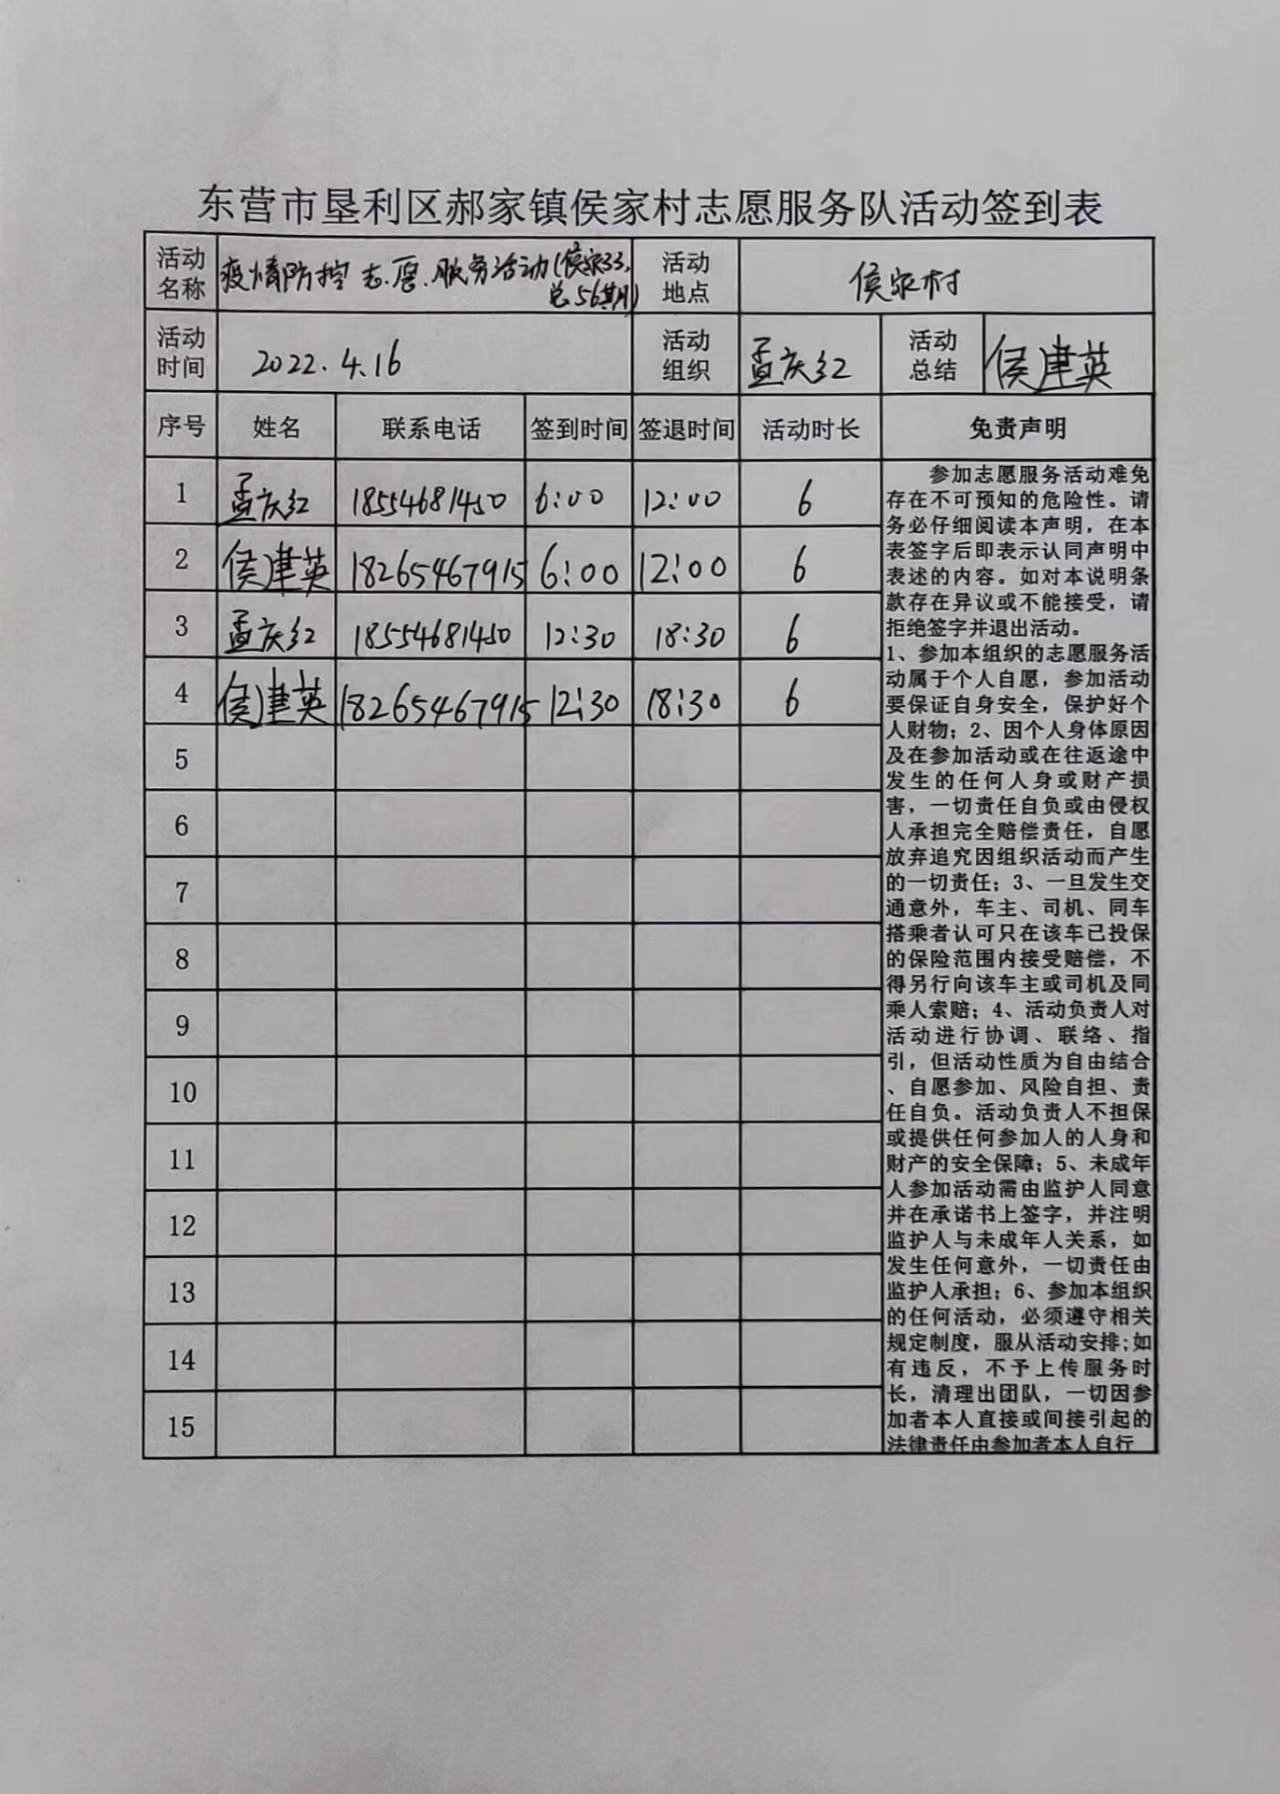 东营市垦利区郝家镇侯家村志愿服务队活动签到表
活动名称 疫情防控志愿服务活动(侯家33,总56期) 活动地点 侯家村
活动时间 2022.4.16 活动组织 孟庆红 活动总结 侯建英
序号 姓名 联系电话 签到时间 签退时间 活动时长 免责声明
1 孟庆红 18554681450 6:00 12:00 6
2 侯建英 18265467915 6:00 12:00 6
3 孟庆红 18554681450 12:30 18:30 6
4 侯建英 18265467915 12:30 18:30 6
5
6
7
8
9
10
11
12
13
14
15
参加志愿服务活动难免
存在不可预知的危险性。请
务必仔细阅读本声明，在本
表签字后即表示认同声明中
表述的内容。如对本说明条
款存在异议或不能接受，请
拒绝签字并退出活动。
1、参加本组织的志愿服务活
动属于个人自愿，参加活动
要保证自身安全，保护好个
人财物；2、因个人身体原因
及在参加活动或在往返途中
发生的任何人身或财产损
害，一切责任自负或由侵权
人承担完全赔偿责任，自愿
放弃追究因组织活动而产生
的一切责任；3、一旦发生交
通意外，车主、司机、同车
搭乘者认可只在该车已投保
的保险范围内接受赔偿，不
得另行向该车主或司机及同
乘人索赔；4、活动负责人对
活动进行协调、联络、指
引，但活动性质为自由结合
、自愿参加、风险自担、责
任自负。活动负责人不担保
或提供任何参加人的人身和
财产的安全保障；5、未成年
人参加活动需由监护人同意
并在承诺书上签字，并注明
监护人与未成年人关系，如
发生任何意外，一切责任由
监护人承担；6、参加本组织
的任何活动，必须遵守相关
规定制度，服从活动安排;如
有违反，不予上传服务时
长，清理出团队，一切因参
加者本人直接或间接引起的
法律责任由参加者本人自行